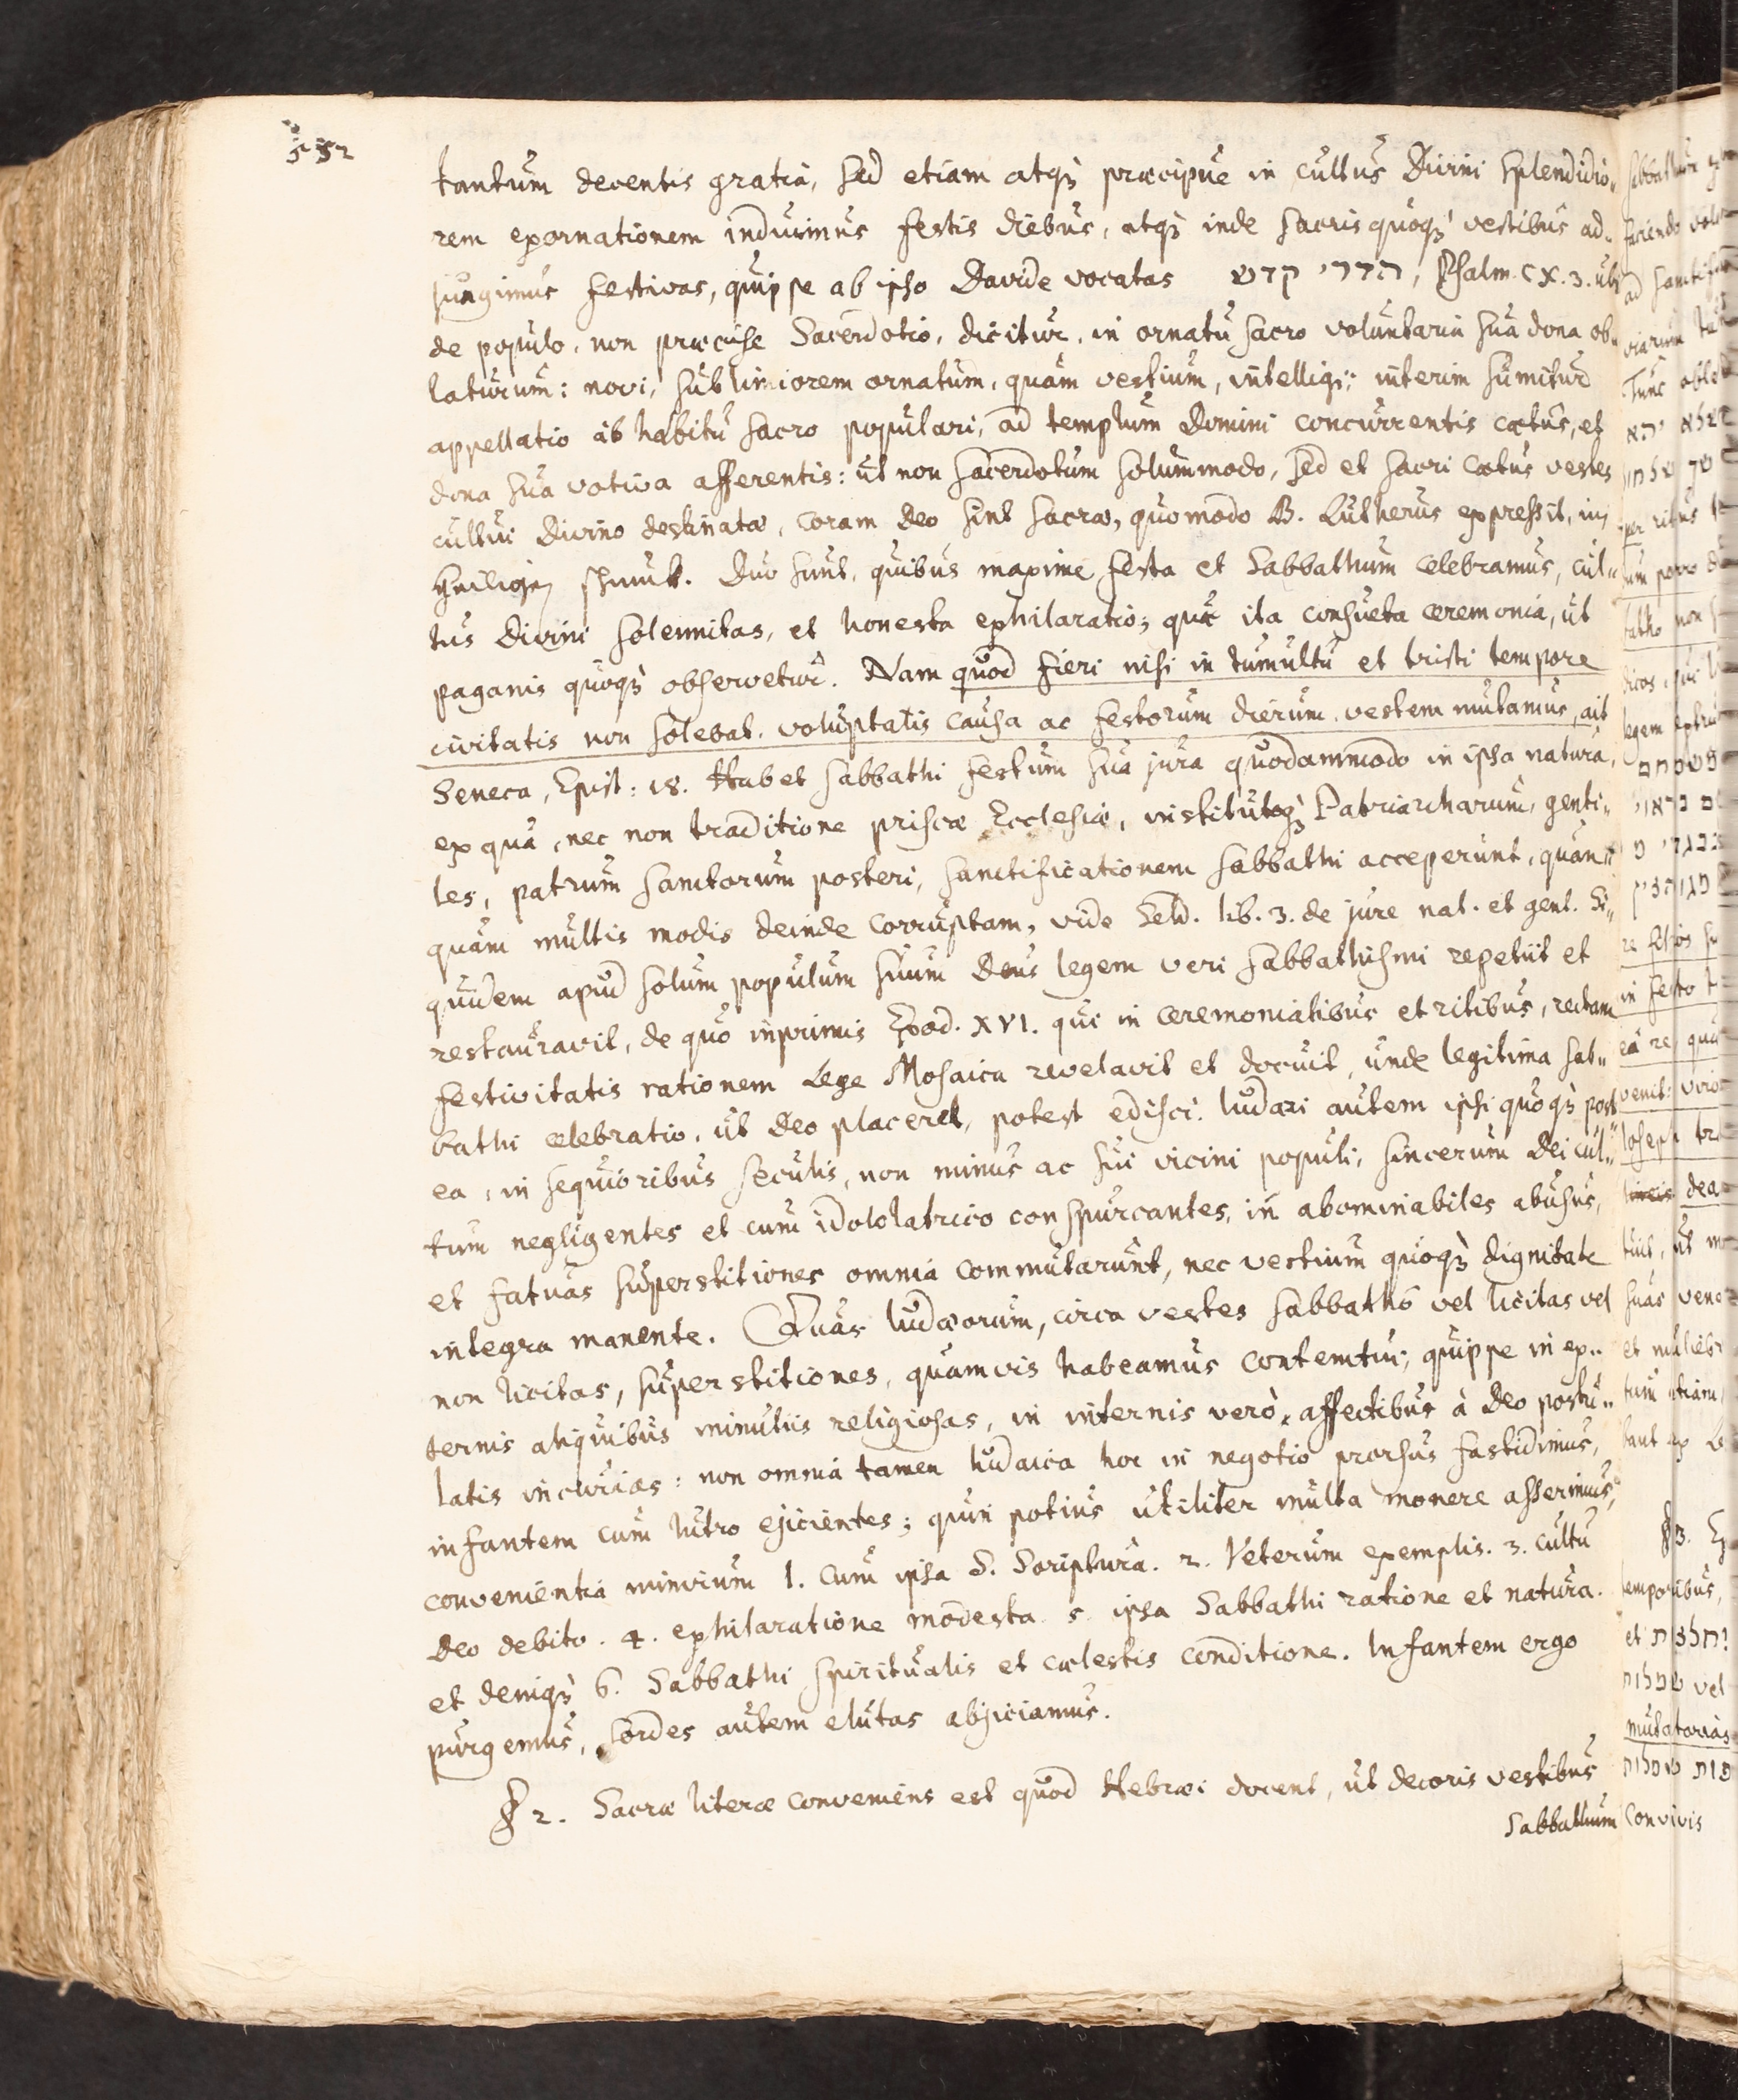 552
tantum decentis gratia, sed etiam atq; præcipue in cultus Divini splendidio-
rem exornationem induimus festis diebus, atq; inde sacris quoq; vestibus ad-
jungimus festivas, quippe ab ipso Davide vocatas הדרי קדש, Psalm. CX. 3. ubi
de populo, non præcise Sacerdotio, dicitur, in ornatu sacro voluntaria sua dona ob-
laturum: novi, sublimiorem ornatum, quam vestium, intelligi; interim sumitur
appellatio ab habitu sacro populari, ad templum Domini concurrentis cætus, et
dona sua votiva afferentis: ut non sacerdotum solummodo, sed et sacri cætus vestes
cultui Divino destinatæ, coram Deo sint sacræ, quomodo B. Lutherus expressit, in
Heiligen schmuk. Duo sunt, quibus maxime festa et Sabbathum celebramus, cul-
tus Divini solennitas, et honesta exhilaratio; quæ ita consueta ceremonia, ut
paganis quoq; observetur. Nam quod fieri nisi in tumultu et tristi tempore
civitatis non solebat, voluptatis causa ac festorum dierum, vestem mutamus, ait
Seneca, Epist: 18. Habet sabbathi festum sua jura quodammodo in ipsa natura,
ex qua, nec non traditione priscæ Ecclesiæ, institutoq; Patriarcharum, genti-
les, patrum sanctorum posteri, sanctificationem sabbathi acceperunt, quan-
quam multis modis deinde corruptam, vide Seld. lib. 3. de jure nat. et gent. Si-
quidem apud solum populum suum Deus legem veri sabbathismi repetiit et
restauravit, de quo inprimis Exod. XVI. qui in ceremonialibus et ritibus, rectam
festivitatis rationem Lege Mosaica revelavit et docuit, unde legitima sab-
bathi celebratio, ut Deo placeret, potest edisci. Iudæi autem ipsi quoq; post
ea, in sequioribus seculis, non minus ac sui vicini populi, sincerum Dei cul-
tum negligentes et cum idololatrico conspurcantes, in abominabiles abusus,
et fatuas superstitiones omnia commutarunt, nec vestium quoq; dignitate
integra manente. Quas Iudæorum, circa vestes sabbatho vel licitas vel
non licitas, superstitiones, quamvis habeamus contemtui, quippe in ex-
ternis aliquibus minutiis religiosas, in internis verò, affectibus à Deo postu-
latis incurias: non omnia tamen Iudaica hoc in negotio prorsus fastidimus,
infantem cum lutro ejicientes; quin potius utiliter multa monere asserimus,
convenientia nimirum 1. cum ipsa S. Scriptura. 2. Veterum exemplis. 3. cultu
Deo debito. 4. exhilaratione modesta 5. ipsa Sabbathi ratione et natura.
et deniq; 6. Sabbathi spiritualis et cælestis conditione. Infantem ergo
purgemus, sordes autem elutas abjiciamus.
§ 2. Sacræ literæ conveniens est quod Hebræi docent, ut decoris vestibus
Sabbathum